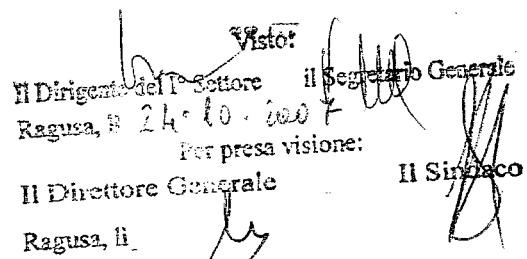 Visto:
Il Dirigente del I° Settore il Segretario Generale
Ragusa, lì 24.10.2007
Per presa visione:
Il Direttore Generale Il Sindaco
Ragusa, lì